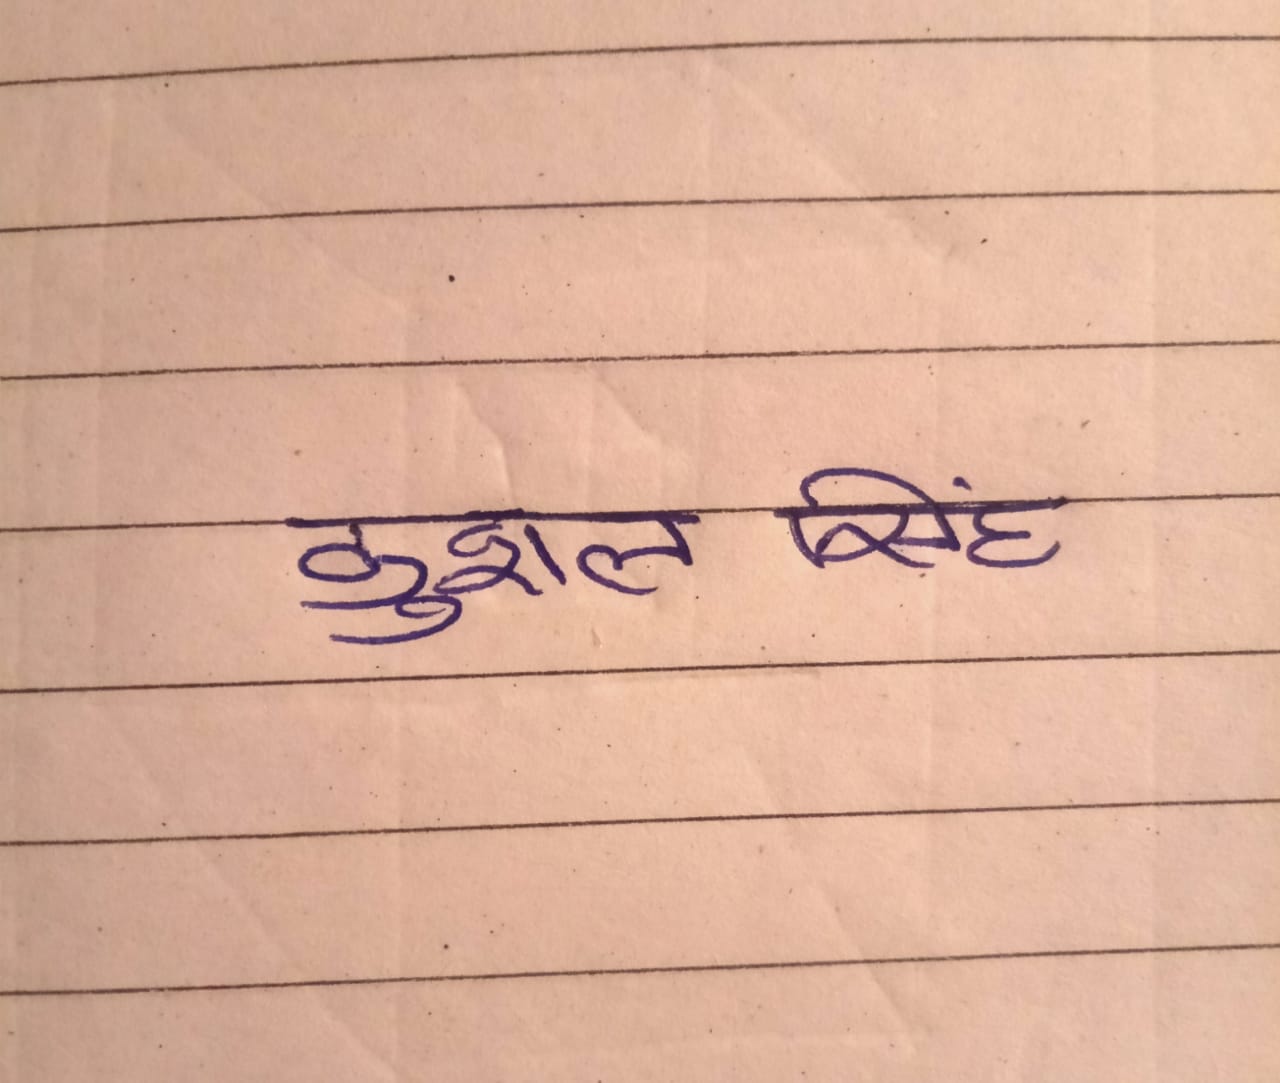 कुशल सिंह